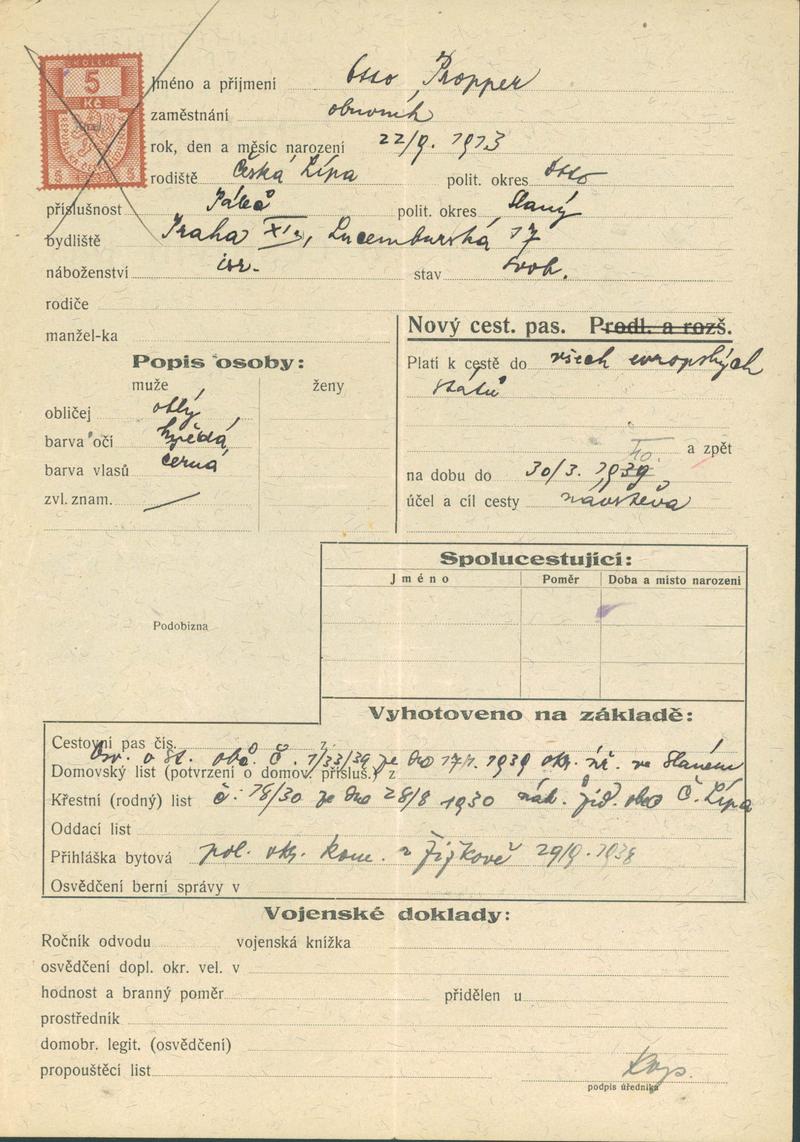 KOLEK
5
Kč
5 5
Jméno a příjmení Otto Propper
zaměstnání obuvník
rok, den a měsíc narození 22/9. 1913
rodiště Česká Lípa polit. okres
příslušnost polit. okres Slaný
bydliště Praha XI., Lucemburská 17
náboženství isr. stav svob.
rodiče
manžel-ka
Nový cest. pas. Prodl. a rozš.
Popis osoby:
muže ženy
obličej oblý
barva očí hnědá
barva vlasů černá
zvl. znam.
Platí k cestě do všech evropských
států
a zpět
na dobu do 30/3. 1939 40.
účel a cíl cesty návštěva
Spolucestující:
Jméno Poměr Doba a místo narození
Podobizna
Vyhotoveno na základě:
Cestovní pas čís. z
Osv. o st. obč. č. 1/33/39 ze dne 17/1. 1939 okr. úř. ve Slaném
Domovský list (potvrzení o domov. přísluš.) z
Křestní (rodný) list č. 78/30 ze dne 28/8 1930 náb. žid. obce Č. Lípa
Oddací list
Přihláška bytová pol. okr. kom. v Žižkově 29/9. 1938
Osvědčení berní správy v
Vojenské doklady:
Ročník odvodu vojenská knížka
osvědčení dopl. okr. vel. v
hodnost a branný poměr přidělen u
prostředník
domobr. legit. (osvědčení)
propouštěcí list
podpis úředníka